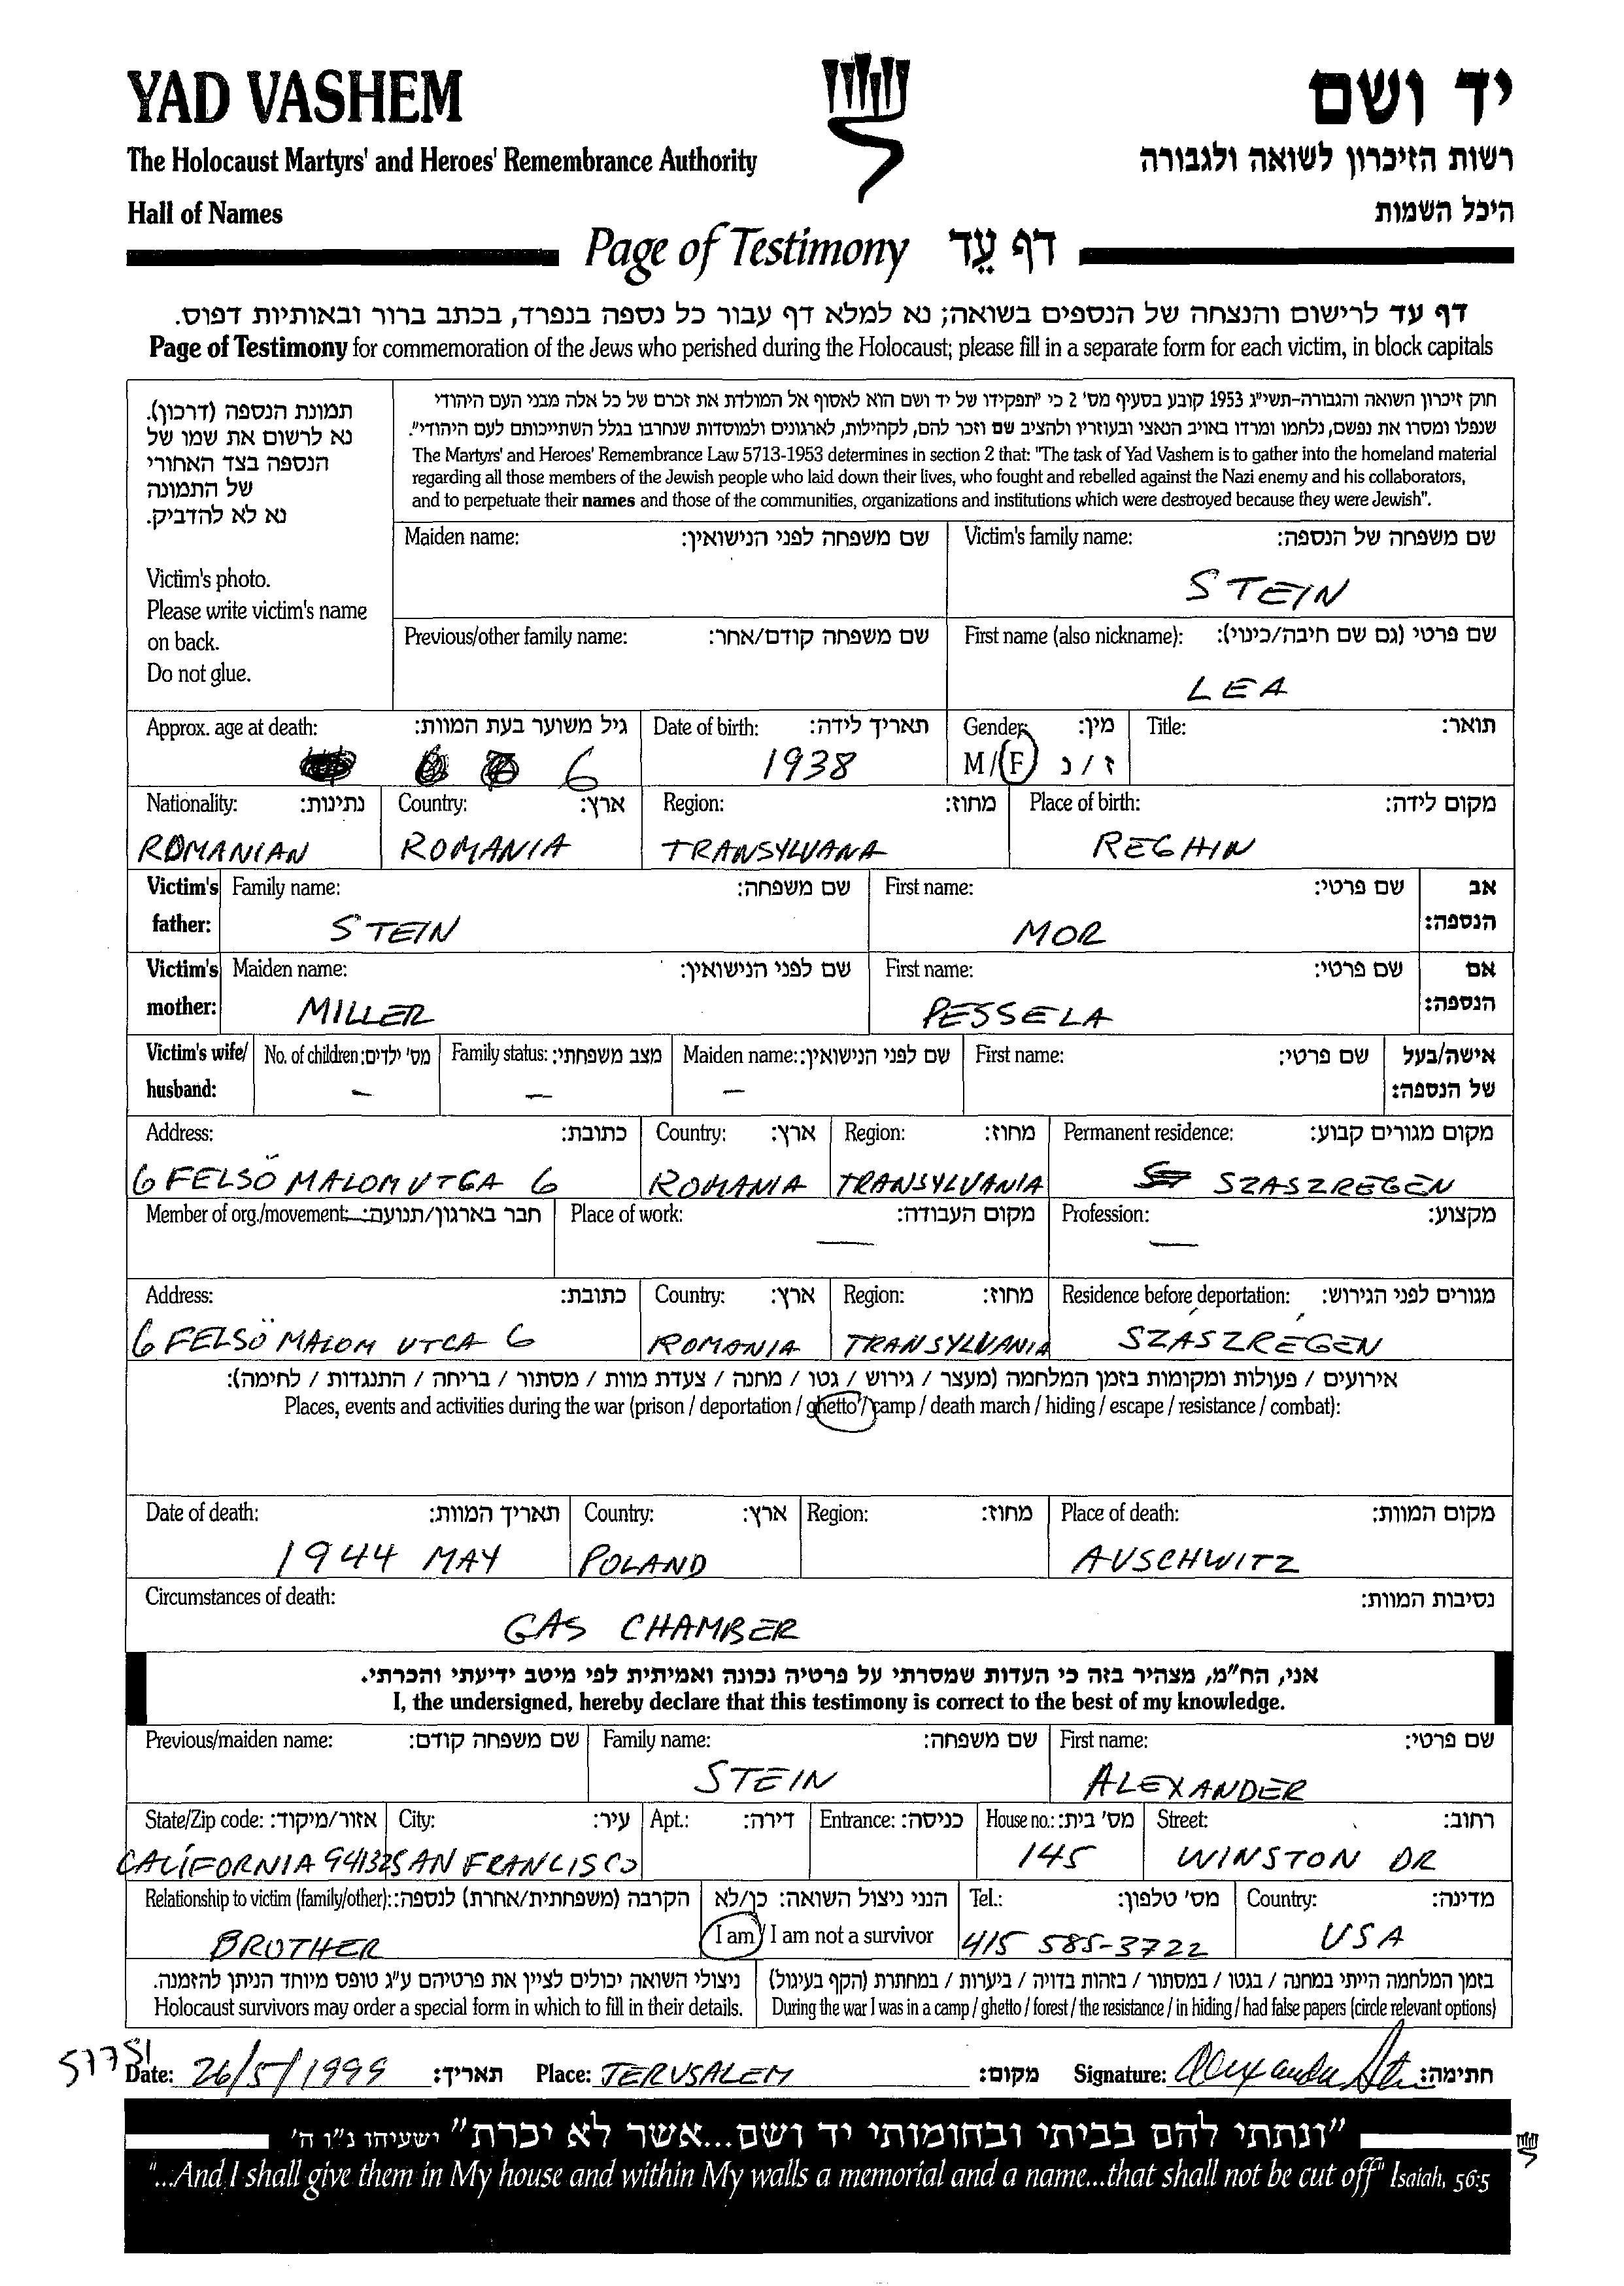 YAD VASHEM
יד ושם
The Holocaust Martyrs' and Heroes' Remembrance Authority
רשות הזיכרון לשואה ולגבורה
Hall of Names
היכל השמות
Page of Testimony דף עֵד
דף עד לרישום והנצחה של הנספים בשואה; נא למלא דף עבור כל נספה בנפרד, בכתב ברור ובאותיות דפוס.
Page of Testimony for commemoration of the Jews who perished during the Holocaust; please fill in a separate form for each victim, in block capitals
תמונת הנספה (דרכון).
נא לרשום את שמו של
הנספה בצד האחורי
של התמונה
נא לא להדביק.
Victim's photo.
Please write victim's name
on back.
Do not glue.
חוק זיכרון השואה והגבורה-תשי"ג 1953 קובע בסעיף מס' 2 כי "תפקידו של יד ושם הוא לאסוף אל המולדת את זכרם של כל אלה מבני העם היהודי
שנפלו ומסרו את נפשם, נלחמו ומרדו באויב הנאצי ובעוזריו ולהציב שם וזכר להם, לקהילות, לארגונים ולמוסדות שנחרבו בגלל השתייכותם לעם היהודי".
The Martyrs' and Heroes' Remembrance Law 5713-1953 determines in section 2 that: "The task of Yad Vashem is to gather into the homeland material
regarding all those members of the Jewish people who laid down their lives, who fought and rebelled against the Nazi enemy and his collaborators,
and to perpetuate their names and those of the communities, organizations and institutions which were destroyed because they were Jewish".
Maiden name: שם משפחה לפני הנישואין: Victim's family name: שם משפחה של הנספה:
STEIN
Previous/other family name: שם משפחה קודם/אחר: First name (also nickname): שם פרטי (גם שם חיבה/כינוי):
LEA
Approx. age at death: גיל משוער בעת המוות: Date of birth: תאריך לידה: Gender: מין: Title: תואר:
6 1938 M/F ז / נ
Nationality: נתינות: Country: ארץ: Region: מחוז: Place of birth: מקום לידה:
ROMANIAN ROMANIA TRANSYLVANA REGHIN
Victim's Family name: שם משפחה: First name: שם פרטי: אב
father: STEIN MOR הנספה:
Victim's Maiden name: שם לפני הנישואין: First name: שם פרטי: אם
mother: MILLER PESSELA הנספה:
Victim's wife/ No. of children: מס' ילדים: Family status: מצב משפחתי: Maiden name: שם לפני הנישואין: First name: שם פרטי: אישה/בעל
husband: – – – של הנספה:
Address: כתובת: Country: ארץ: Region: מחוז: Permanent residence: מקום מגורים קבוע:
6 FELSÖ MALOM UTCA 6 ROMANIA TRANSYLVANIA SZASZREGEN
Member of org./movement: חבר בארגון/תנועה: Place of work: מקום העבודה: Profession: מקצוע:
— —
Address: כתובת: Country: ארץ: Region: מחוז: Residence before deportation: מגורים לפני הגירוש:
6 FELSÖ MALOM UTCA 6 ROMANIA TRANSYLVANIA SZÁSZRÉGEN
אירועים / פעולות ומקומות בזמן המלחמה (מעצר / גירוש / גטו / מחנה / צעדת מוות / מסתור / בריחה / התנגדות / לחימה):
Places, events and activities during the war (prison / deportation / ghetto / camp / death march / hiding / escape / resistance / combat):
Date of death: תאריך המוות: Country: ארץ: Region: מחוז: Place of death: מקום המוות:
1944 MAY POLAND AUSCHWITZ
Circumstances of death: נסיבות המוות:
GAS CHAMBER
אני, הח"מ, מצהיר בזה כי העדות שמסרתי על פרטיה נכונה ואמיתית לפי מיטב ידיעתי והכרתי.
I, the undersigned, hereby declare that this testimony is correct to the best of my knowledge.
Previous/maiden name: שם משפחה קודם: Family name: שם משפחה: First name: שם פרטי:
STEIN ALEXANDER
State/Zip code: אזור/מיקוד: City: עיר: Apt.: דירה: Entrance: כניסה: House no.: מס' בית: Street: רחוב:
CALIFORNIA 94132 SAN FRANCISCO 145 WINSTON DR
Relationship to victim (family/other): הקרבה (משפחתית/אחרת) לנספה: הנני ניצול השואה: כן/לא Tel.: מס' טלפון: Country: מדינה:
BROTHER I am / I am not a survivor 415 585-3722 USA
ניצולי השואה יכולים לציין את פרטיהם ע"ג טופס מיוחד הניתן להזמנה.
Holocaust survivors may order a special form in which to fill in their details.
בזמן המלחמה הייתי במחנה / בגטו / במסתור / בזהות בדויה / ביערות / במחתרת (הקף בעיגול)
During the war I was in a camp / ghetto / forest / the resistance / in hiding / had false papers (circle relevant options)
Date: 26/5/1999 תאריך: Place: JERUSALEM מקום: Signature: Alexander Stein חתימה:
"ונתתי להם בביתי ובחומותי יד ושם...אשר לא יכרת" ישעיהו נ"ו ה'
"...And I shall give them in My house and within My walls a memorial and a name...that shall not be cut off" Isaiah, 56:5